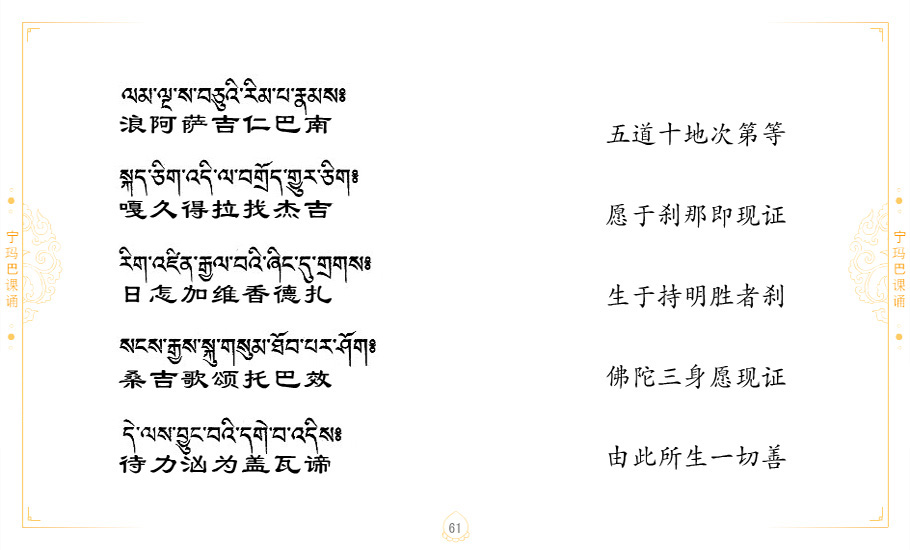 ལམ་ལྔ་ས་བཅུའི་རིམ་པ་རྣམས༔
浪阿萨吉仁巴南
五道十地次第等
སྐད་ཅིག་འདི་ལ་བགྲོད་གྱུར་ཅིག༔
嘎久得拉找杰吉
愿于刹那即现证
རིག་འཛིན་རྒྱལ་བའི་ཞིང་དུ་གྲགས༔
日怎加维香德扎
生于持明胜者刹
སངས་རྒྱས་སྐུ་གསུམ་ཐོབ་པར་ཤོག༔
桑吉歌颂托巴效
佛陀三身愿现证
དེ་ལས་བྱུང་བའི་དགེ་བ་འདིས༔
待力汹为盖瓦谛
由此所生一切善
宁玛巴课诵
宁玛巴课诵
61